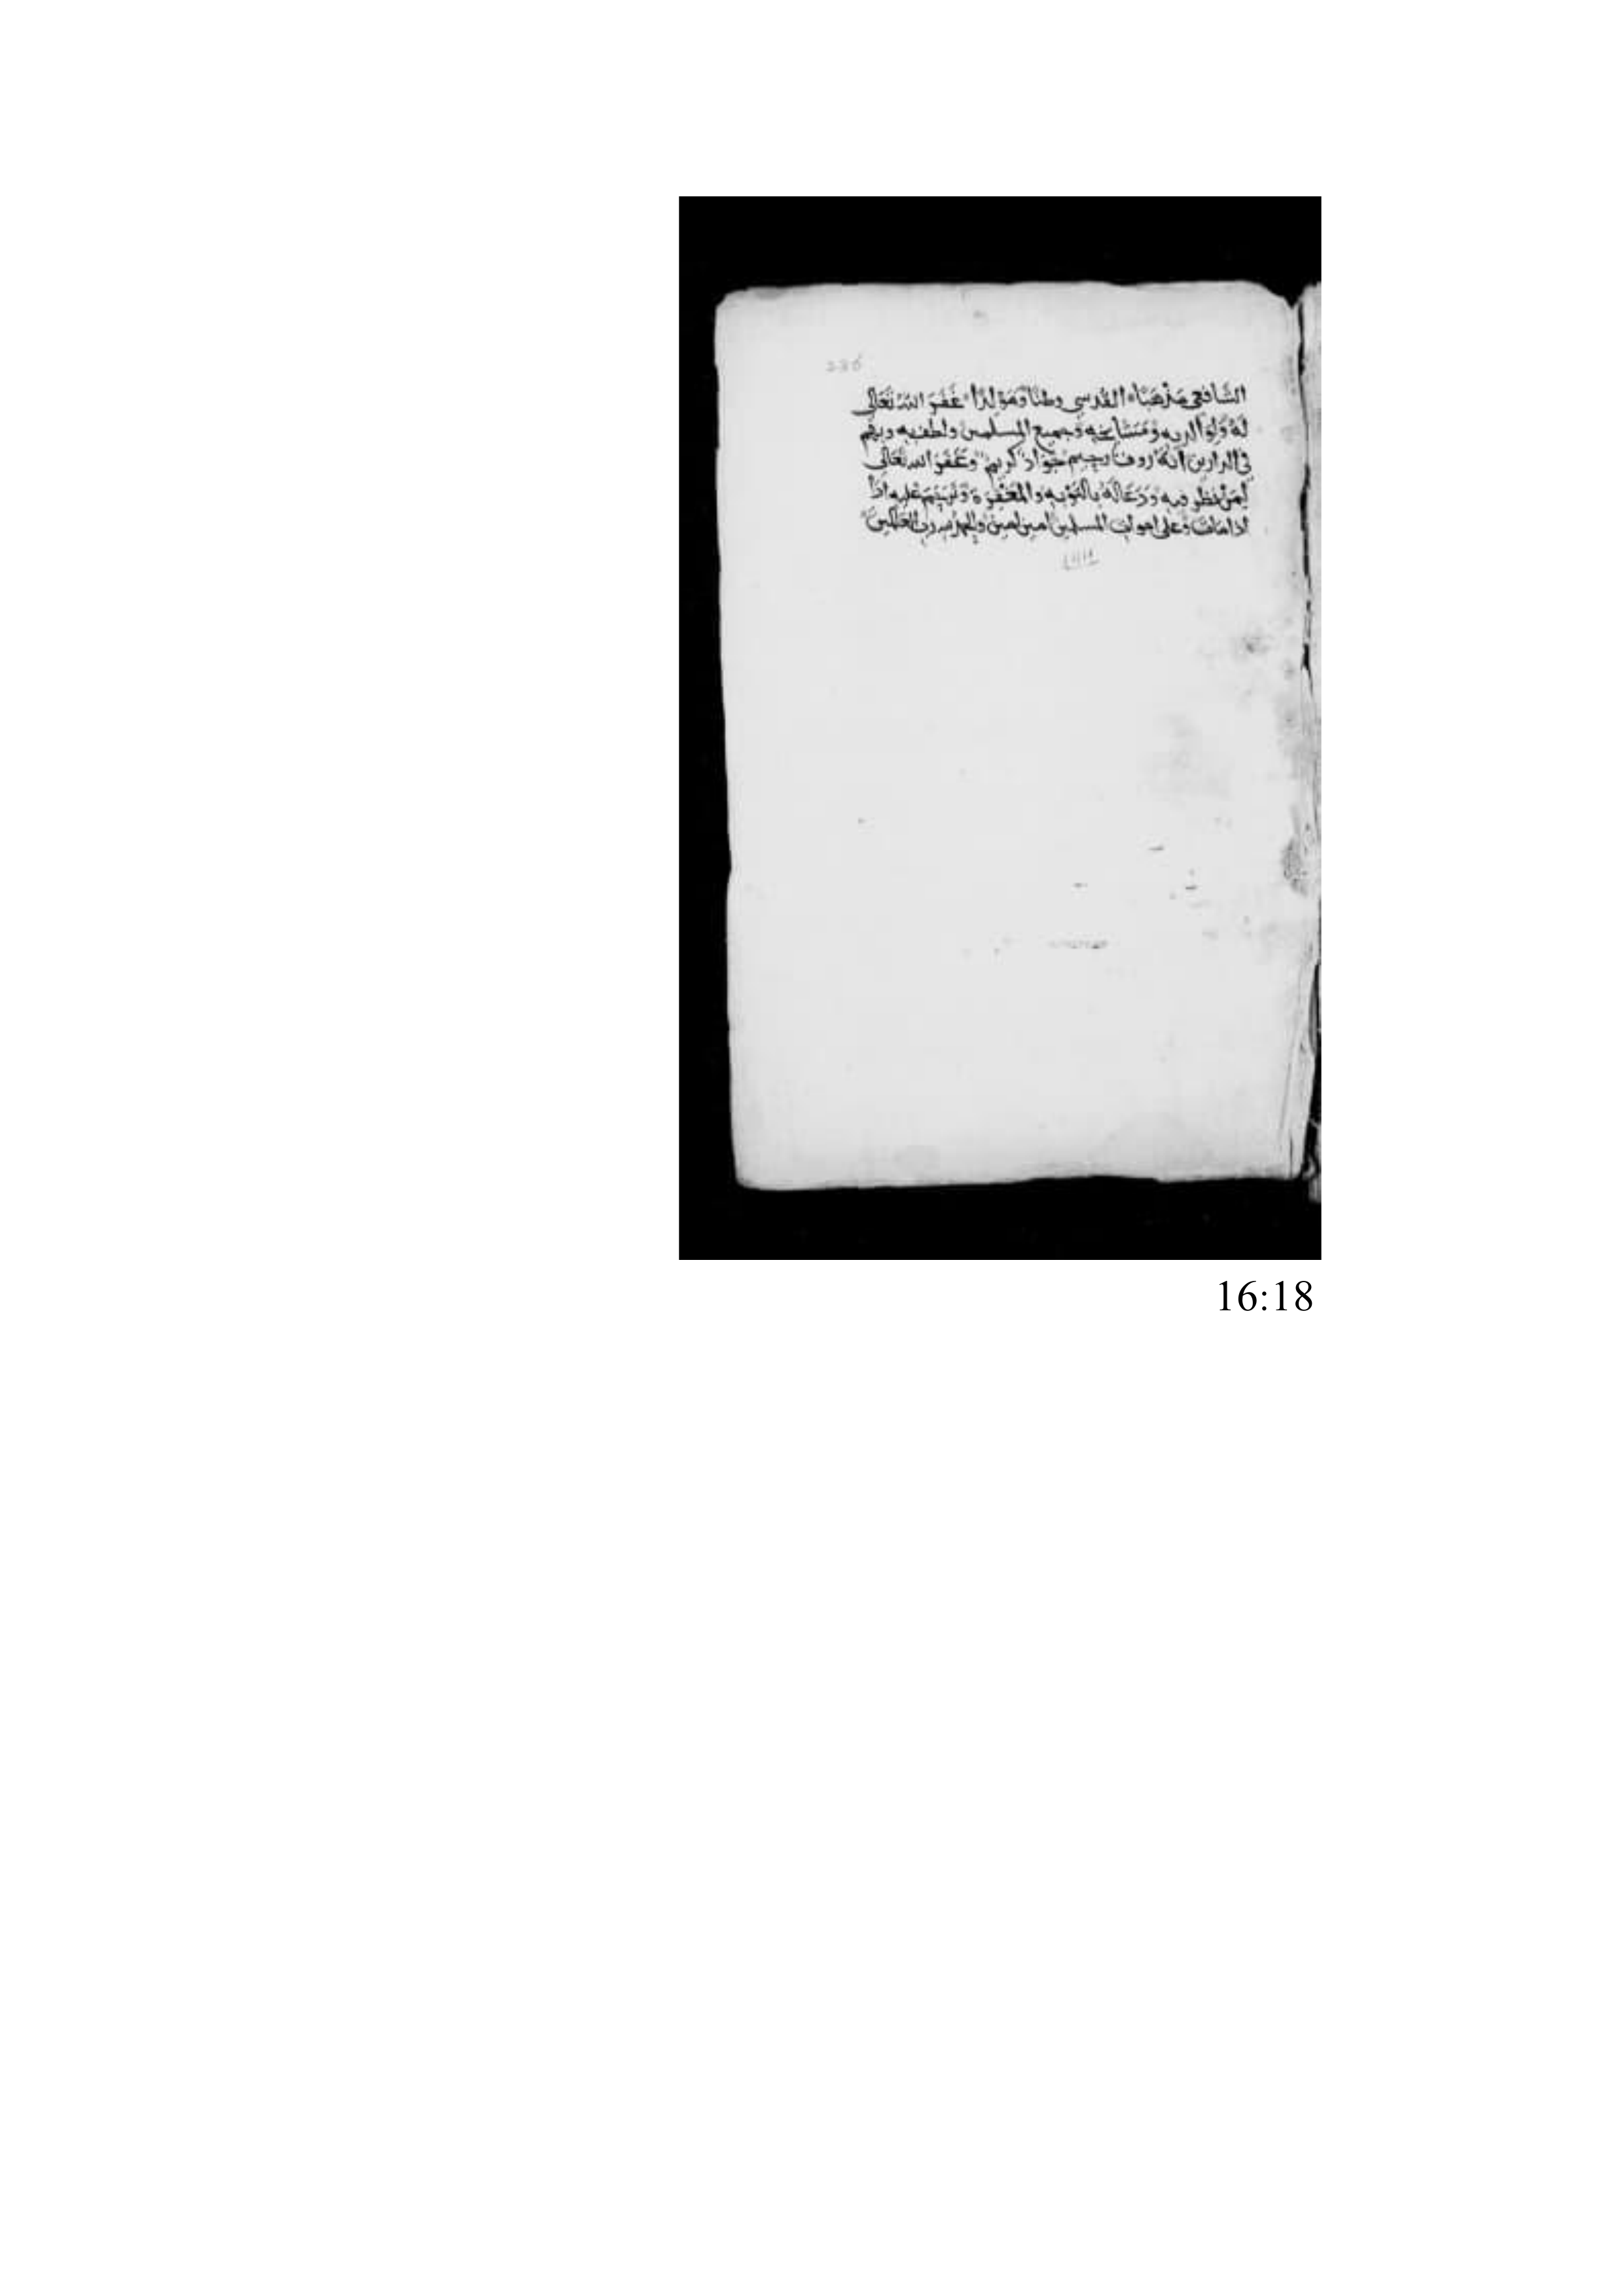 236
الشَّافعي مَذْهَبًا القُدسي وطنًا وَمَوْلِدًا غَفَرَ اللهُ تَعَالَى
لَهُ وَلِوَالديه وَمَشَايخِه وَجميع المسلمين ولطف به وبهم
في الدارين انهُ رووف رحيم جَوَاد كَريم وغَفَرَ الله تَعَالَى
لِمَنْ نظر فيه وَدَعَا لَهُ بالتَوْبه والمَغْفِرَة عليه اذَا
اذا مات وَعلى اموات المسلمين امين امين والحمد لله رب العَالمين
16:18